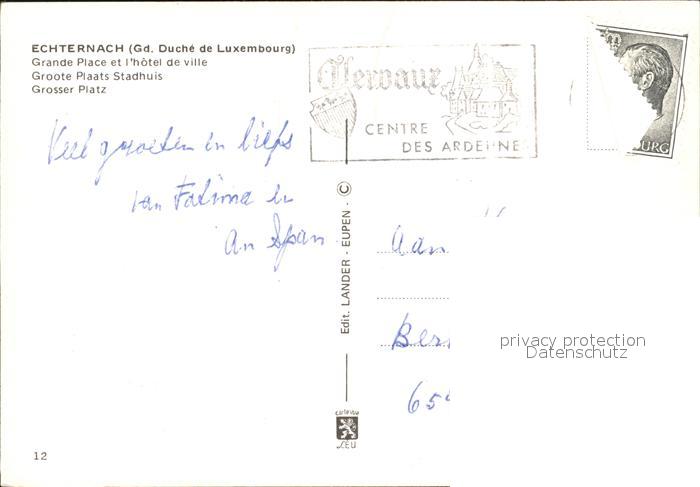 ECHTERNACH (Gd. Duché de Luxembourg)
Grande Place et l'hôtel de ville
Groote Plaats Stadhuis
Grosser Platz
Clervaux
CENTRE
DES ARDENNE
BURG
Veel groeten en liefs
van Fatima en
An Span
Aan
Ber
65
Edit. LANDER - EUPEN - ©
privacy protection
Datenschutz
12